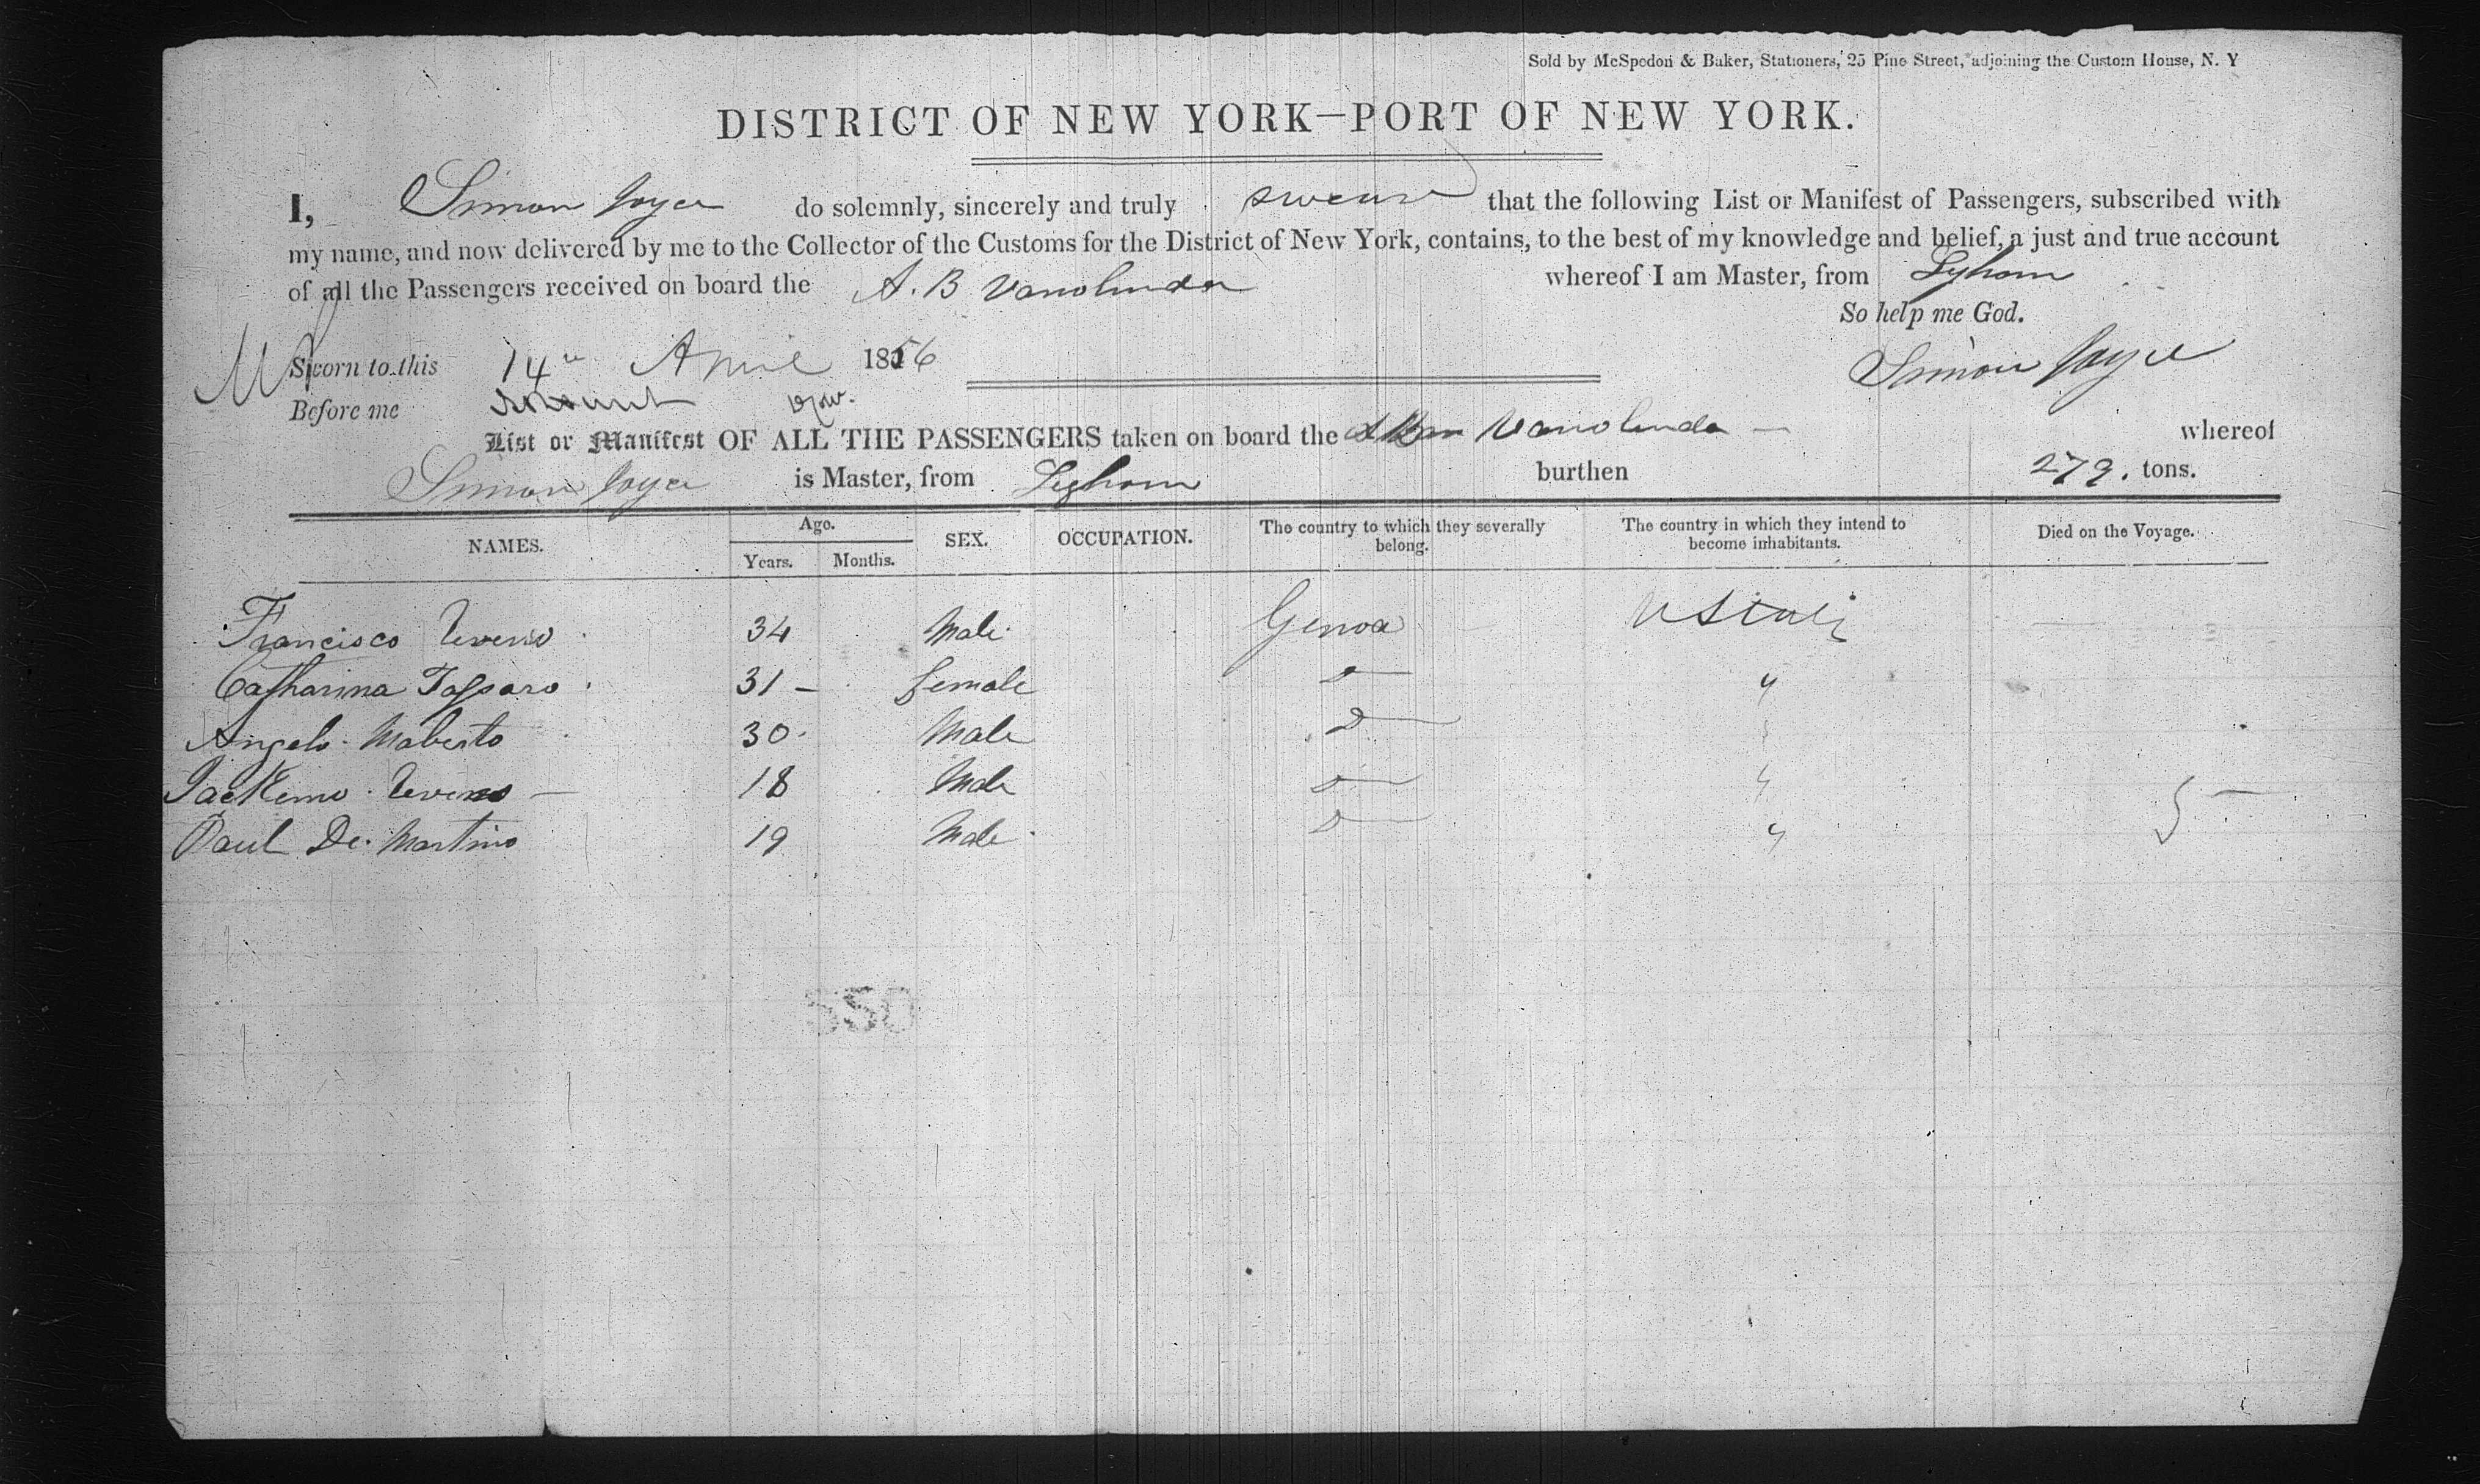 Sold by McSpedon & Baker, Stationers, 25 Pine Street, adjoining the Custom House, N. Y
DISTRICT OF NEW YORK—PORT OF NEW YORK.
I, Simon Joyce do solemnly, sincerely and truly swear that the following List or Manifest of Passengers, subscribed with
my name, and now delivered by me to the Collector of the Customs for the District of New York, contains, to the best of my knowledge and belief, a just and true account
of all the Passengers received on board the A. B Vanolinda whereof I am Master, from Leghorn
So help me God.
Sworn to this 14 April 1856 Simon Joyce
Before me
List or Manifest OF ALL THE PASSENGERS taken on board the Vanolinda — whereof
Simon Joyce is Master, from Leghorn burthen 279. tons.
NAMES. Age. Years. Months. SEX. OCCUPATION. The country to which they severally belong. The country in which they intend to become inhabitants. Died on the Voyage.
Francisco 34 Male Genoa
Catharina Tassaro 31 – female "
Angelo Maberto 30 Male
18 Male "
Paul De. Martino 19 Male "
5 —
550